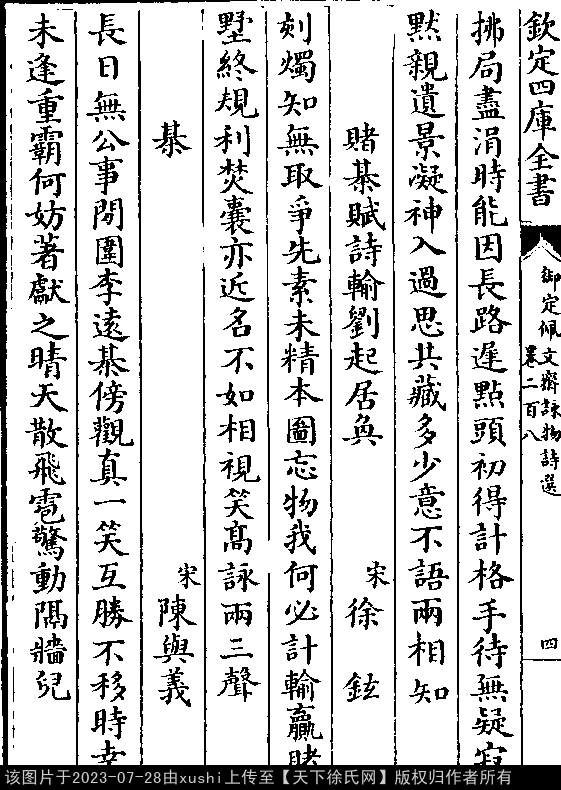 欽定四庫全書
御定佩文齋詠物詩選
卷二百八
四
拂局盡涓時能因長路遲點頭初得計格手待無疑寂
黙親遺景凝神入過思共藏多少意不語兩相知
賭棊賦詩輸劉起居奐
宋徐鉉
刻燭知無取爭先素未精本圖忘物我何必計輸贏賭
墅終規利焚囊亦近名不如相視笑髙詠兩三聲
棊
宋陳與義
長日無公事閑圍李遠棊傍觀真一笑互勝不移時幸
未逢重霸何妨著獻之晴天散飛雹驚動隔牆兒
该图片于2023-07-28由xushi上传至【天下徐氏网】版权归作者所有